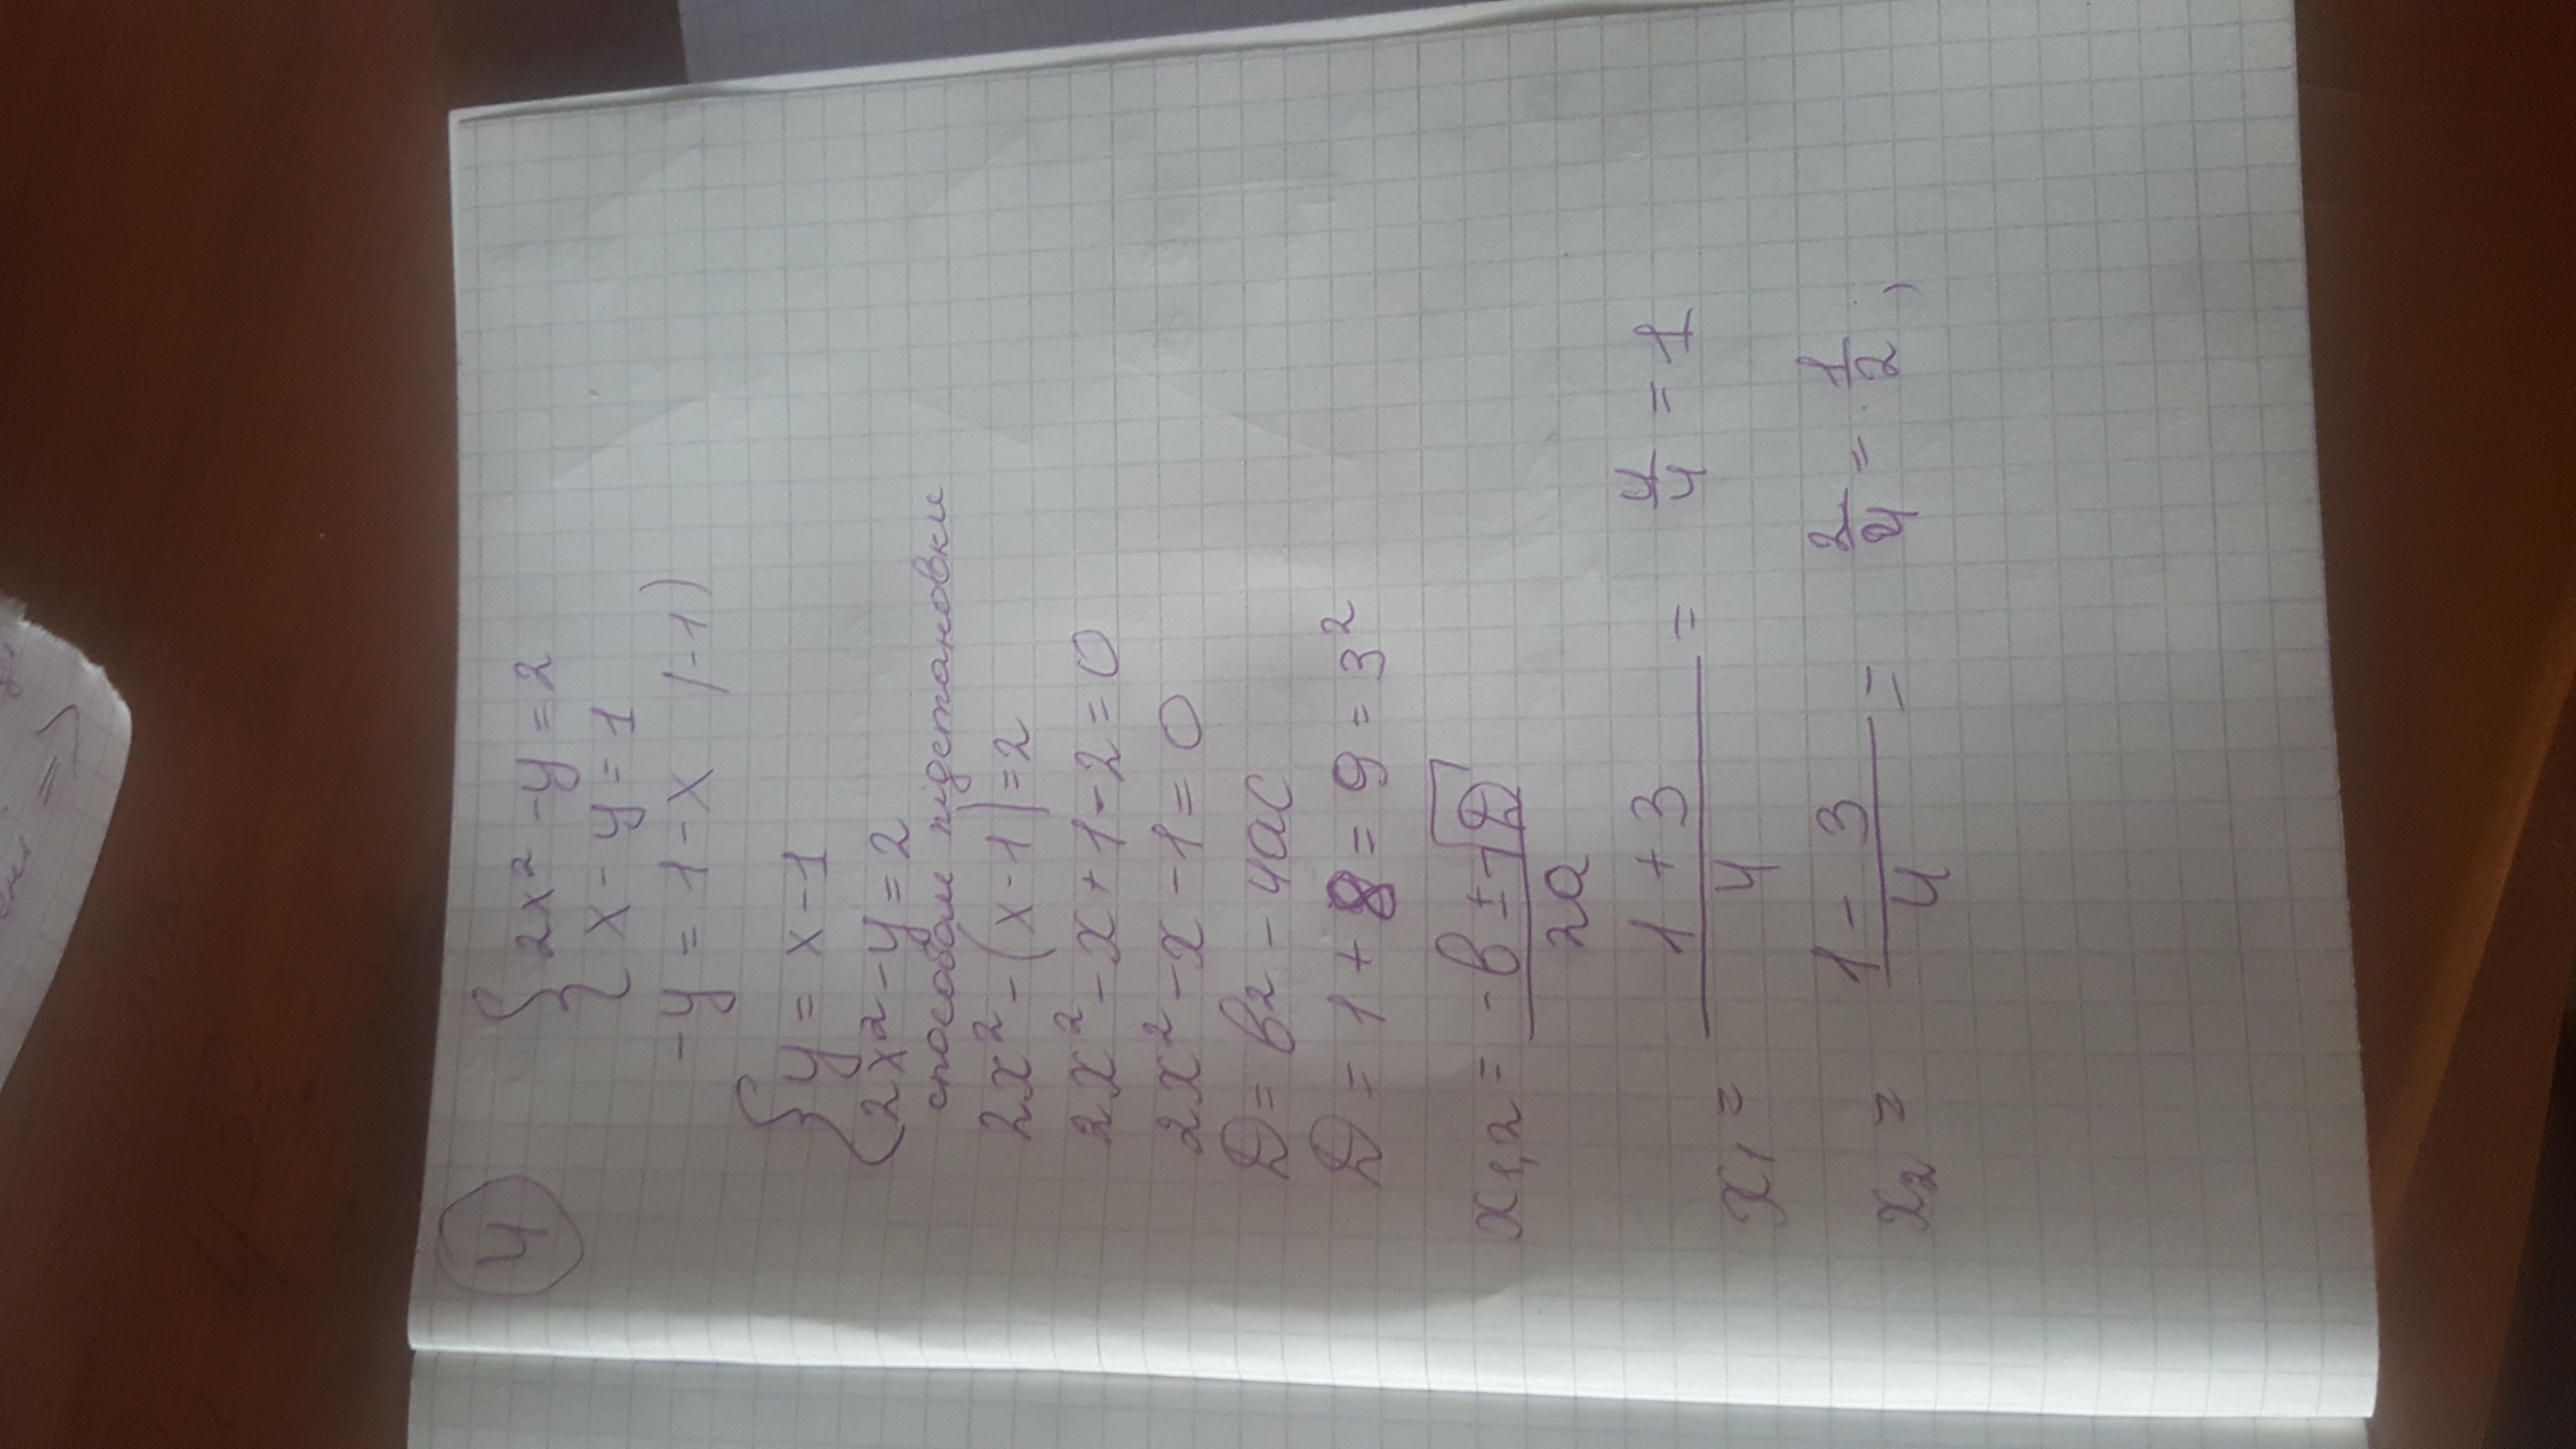 4
{ 2x² - y = 2
x - y = 1
-y = 1 - x /-1)
{ y = x - 1
2x² - y = 2
способом підстановки
2x² - (x - 1) = 2
2x² - x + 1 - 2 = 0
2x² - x - 1 = 0
D = b2 - 4ac
D = 1 + 8 = 9 = 3²
x1,2 = (-b ± √D)/2a
x1 = (1 + 3)/4 = 4/4 = 1
x2 = (1 - 3)/4 = 2/4 = 1/2 )